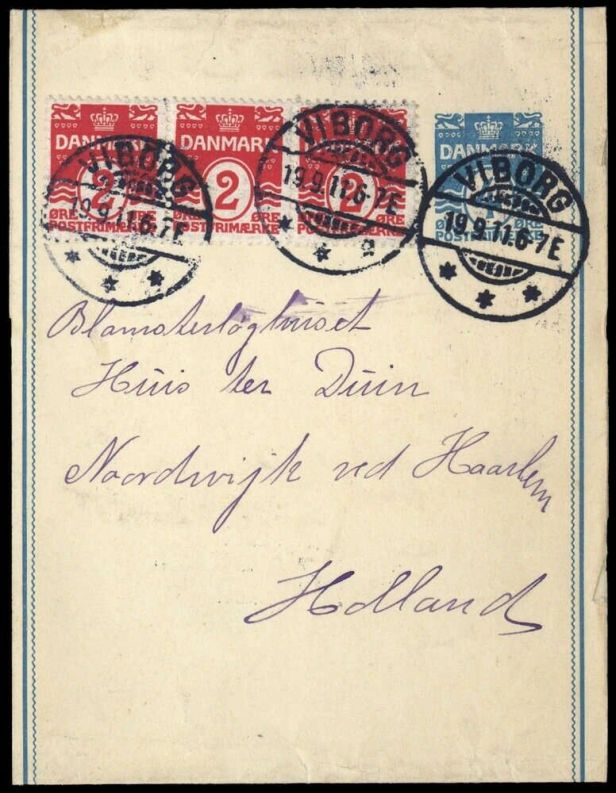 DANMARK DANMARK DANMARK
2 2 2
ØRE ØRE ØRE ØRE
POSTFRIMÆRKE POSTFRIMÆRKE POSTFRIMÆRKE
DANMARK
ØRE
POSTFRIMÆRKE
VIBORG
19.9.11.6-7E
VIBORG
19.9.11.6-7E
VIBORG
19.9.11.6-7E
Blomsterløghuset
Huis ter Duin
Noordwijk ved Haarlem
Holland